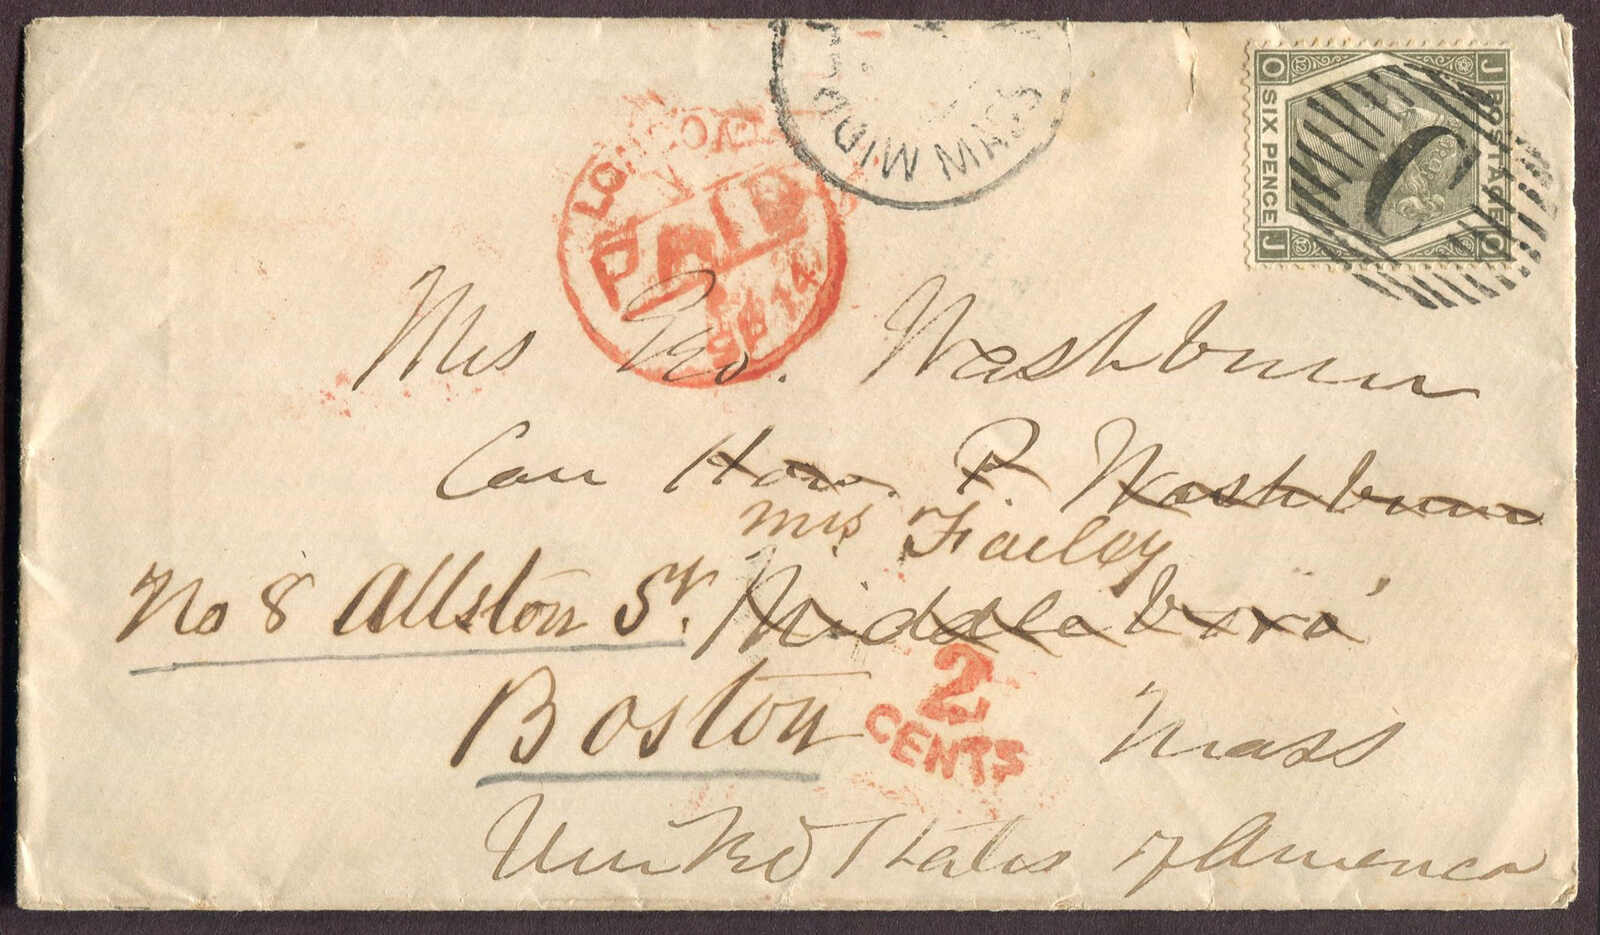 MIDDL
MASS
O J
POSTAGE
SIX PENCE
J O
LONDON
PAID
14
Mrs Geo. Washburn
Care Hon. P Washburn
Mrs Failey
No 8 Allston St. Middleboro'
2
CENTS
Boston Mass
United States of America